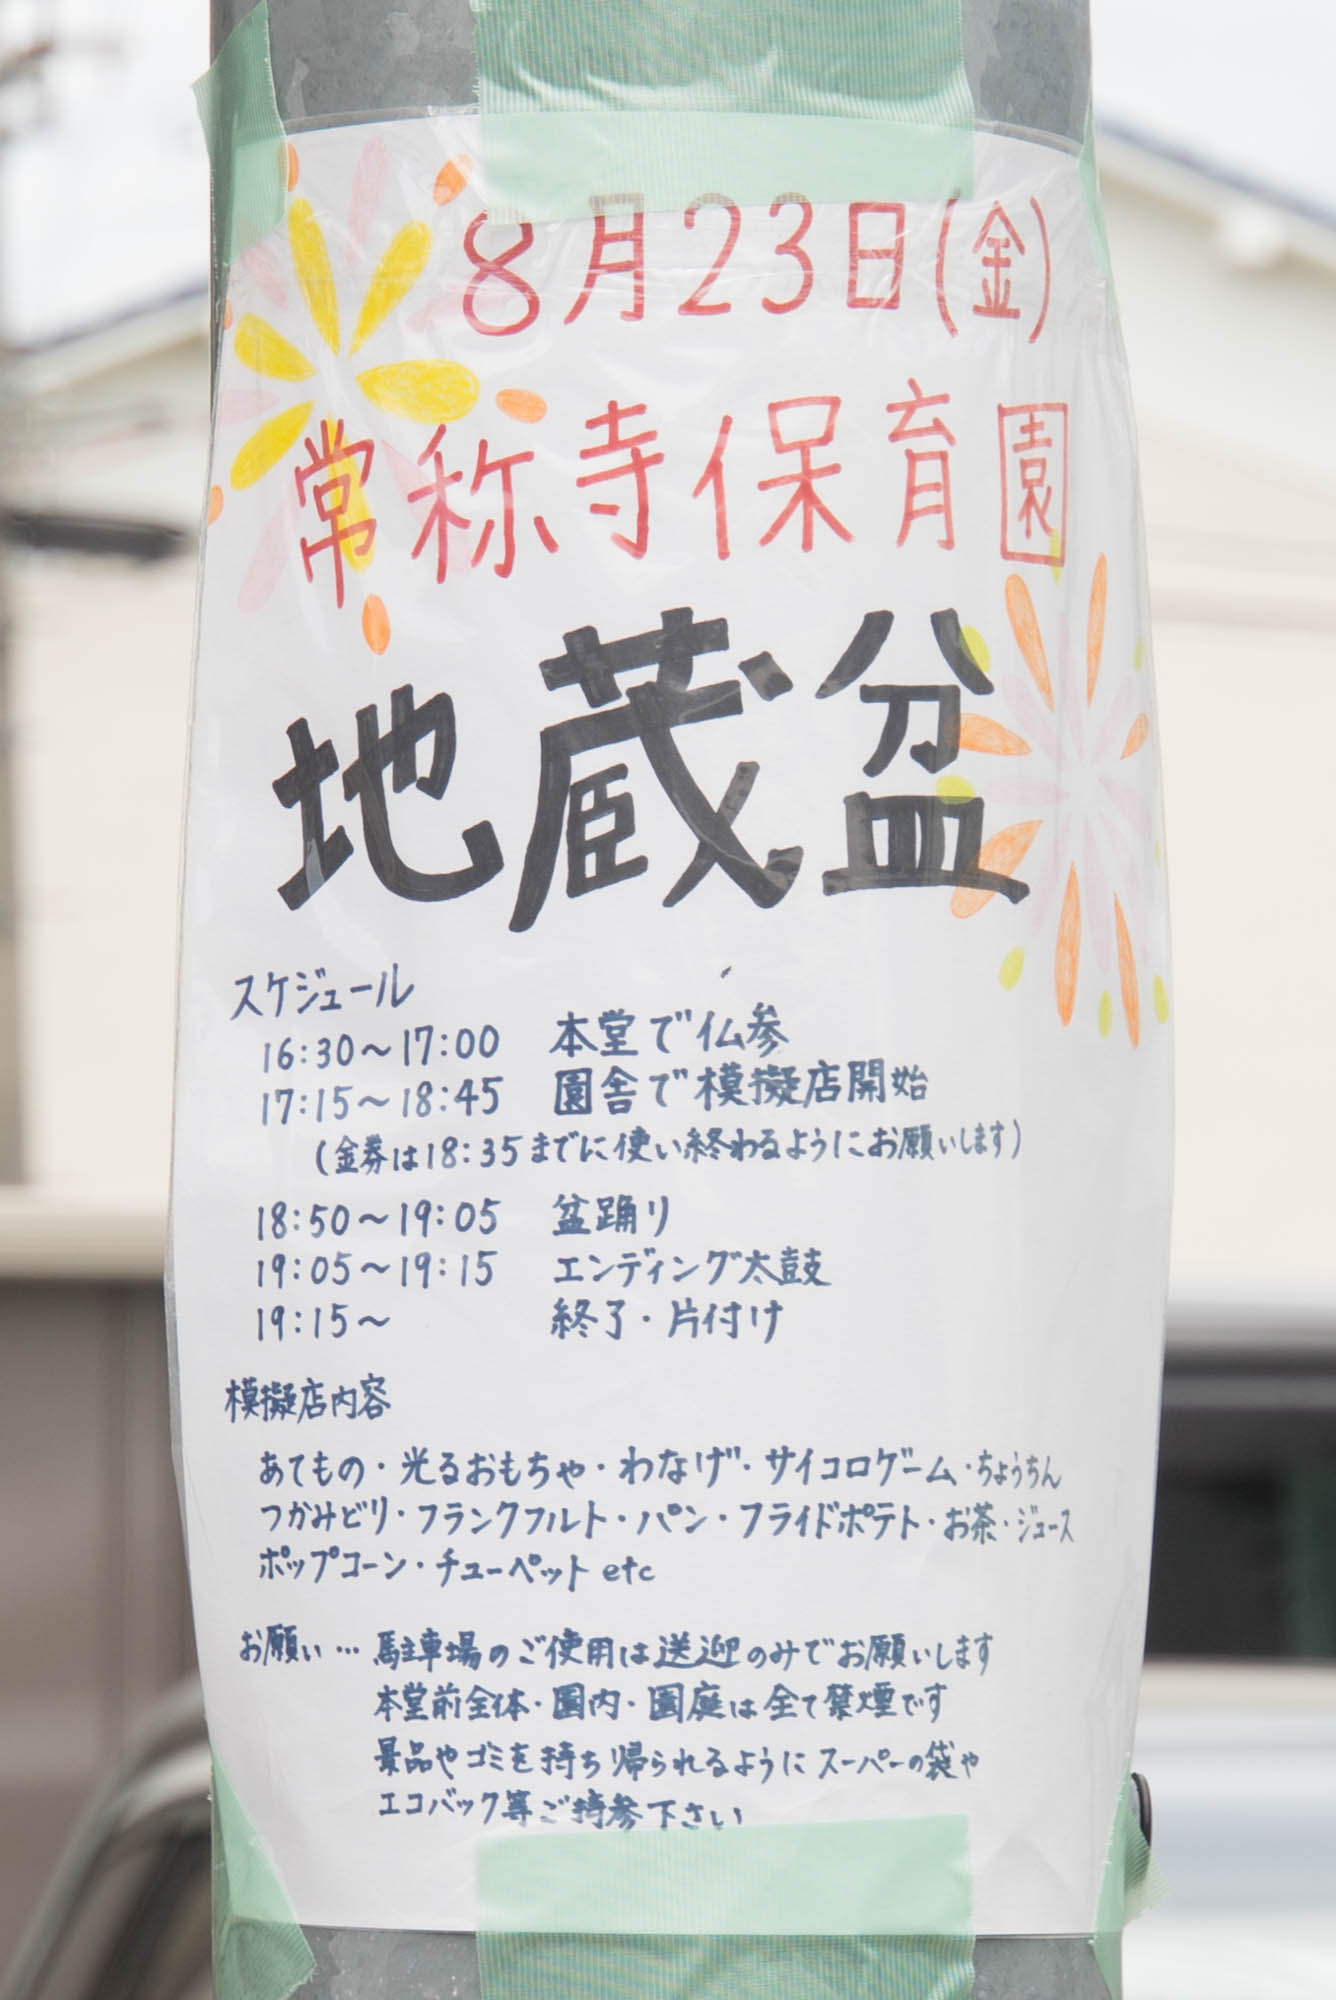 8月23日(金)
常称寺保育園
地蔵盆
スケジュール
16:30～17:00 本堂で仏参
17:15～18:45 園舎で模擬店開始
(金券は18:35までに使い終わるようにお願いします)
18:50～19:05 盆踊り
19:05～19:15 エンディング太鼓
19:15～ 終了・片付け
模擬店内容
あてもの・光るおもちゃ・わなげ・サイコロゲーム・ちょうちん
つかみどり・フランクフルト・パン・フライドポテト・お茶・ジュース
ポップコーン・チューペット etc
お願い…駐車場のご使用は送迎のみでお願いします
本堂前全体・園内・園庭は全て禁煙です
景品やゴミを持ち帰られるようにスーパーの袋や
エコバック等ご持参下さい